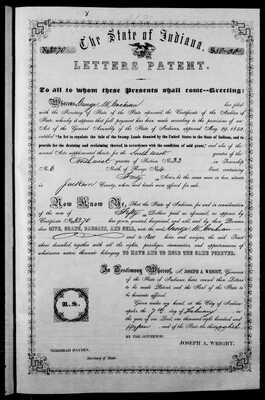 The State of Indiana.
LETTERS PATENT.
To all to whom these Presents shall come—Greeting:
Whereas, George W. has filed
with the Secretary of State of the State aforesaid, the Certificate of the Auditor of
State, whereby it appears that full payment has been made according to the provisions of an
Act of the General Assembly of the State of Indiana, approved May 29, 1852,
entitled "An Act to regulate the Sale of the Swamp Lands donated by the United States to the State of Indiana, and to
provide for the draining and reclaiming thereof, in accordance with the condition of said grant," and also of the
several Acts supplemental thereto, for the South East quarter of the
quarter of Section 33 in Township
No. 6 North of Range No. East, containing
Forty Acres, to the same more or less, situate
in Jackson County, when said lands were offered for sale.
Now Know Ye, That the State of Indiana, for and in consideration
of the sum of Fifty Dollars paid as aforesaid, as appears by
Certificate No. 3370 has given, granted, bargained and sold, and by these Presents
does GIVE, GRANT, BARGAIN, AND SELL, unto the said George W.
and to his heirs and assigns, the said Tract
above described, together with all the rights, privileges, immunities, and appurtenances of
whatsoever nature thereunto belonging, TO HAVE AND TO HOLD THE SAME FOREVER.
In Testimony Whereof, I, JOSEPH A. WRIGHT, Governor
of the State of Indiana, have caused these Letters
to be made Patent, and the Seal of the State to
be hereunto affixed.
Given under my hand, at the City of Indian-
apolis, the 7th day of February in
the year of our Lord, one thousand eight hundred and
and of the State the
BY THE GOVERNOR:
JOSEPH A. WRIGHT.
NEHEMIAH HAYDEN,
Secretary of State.